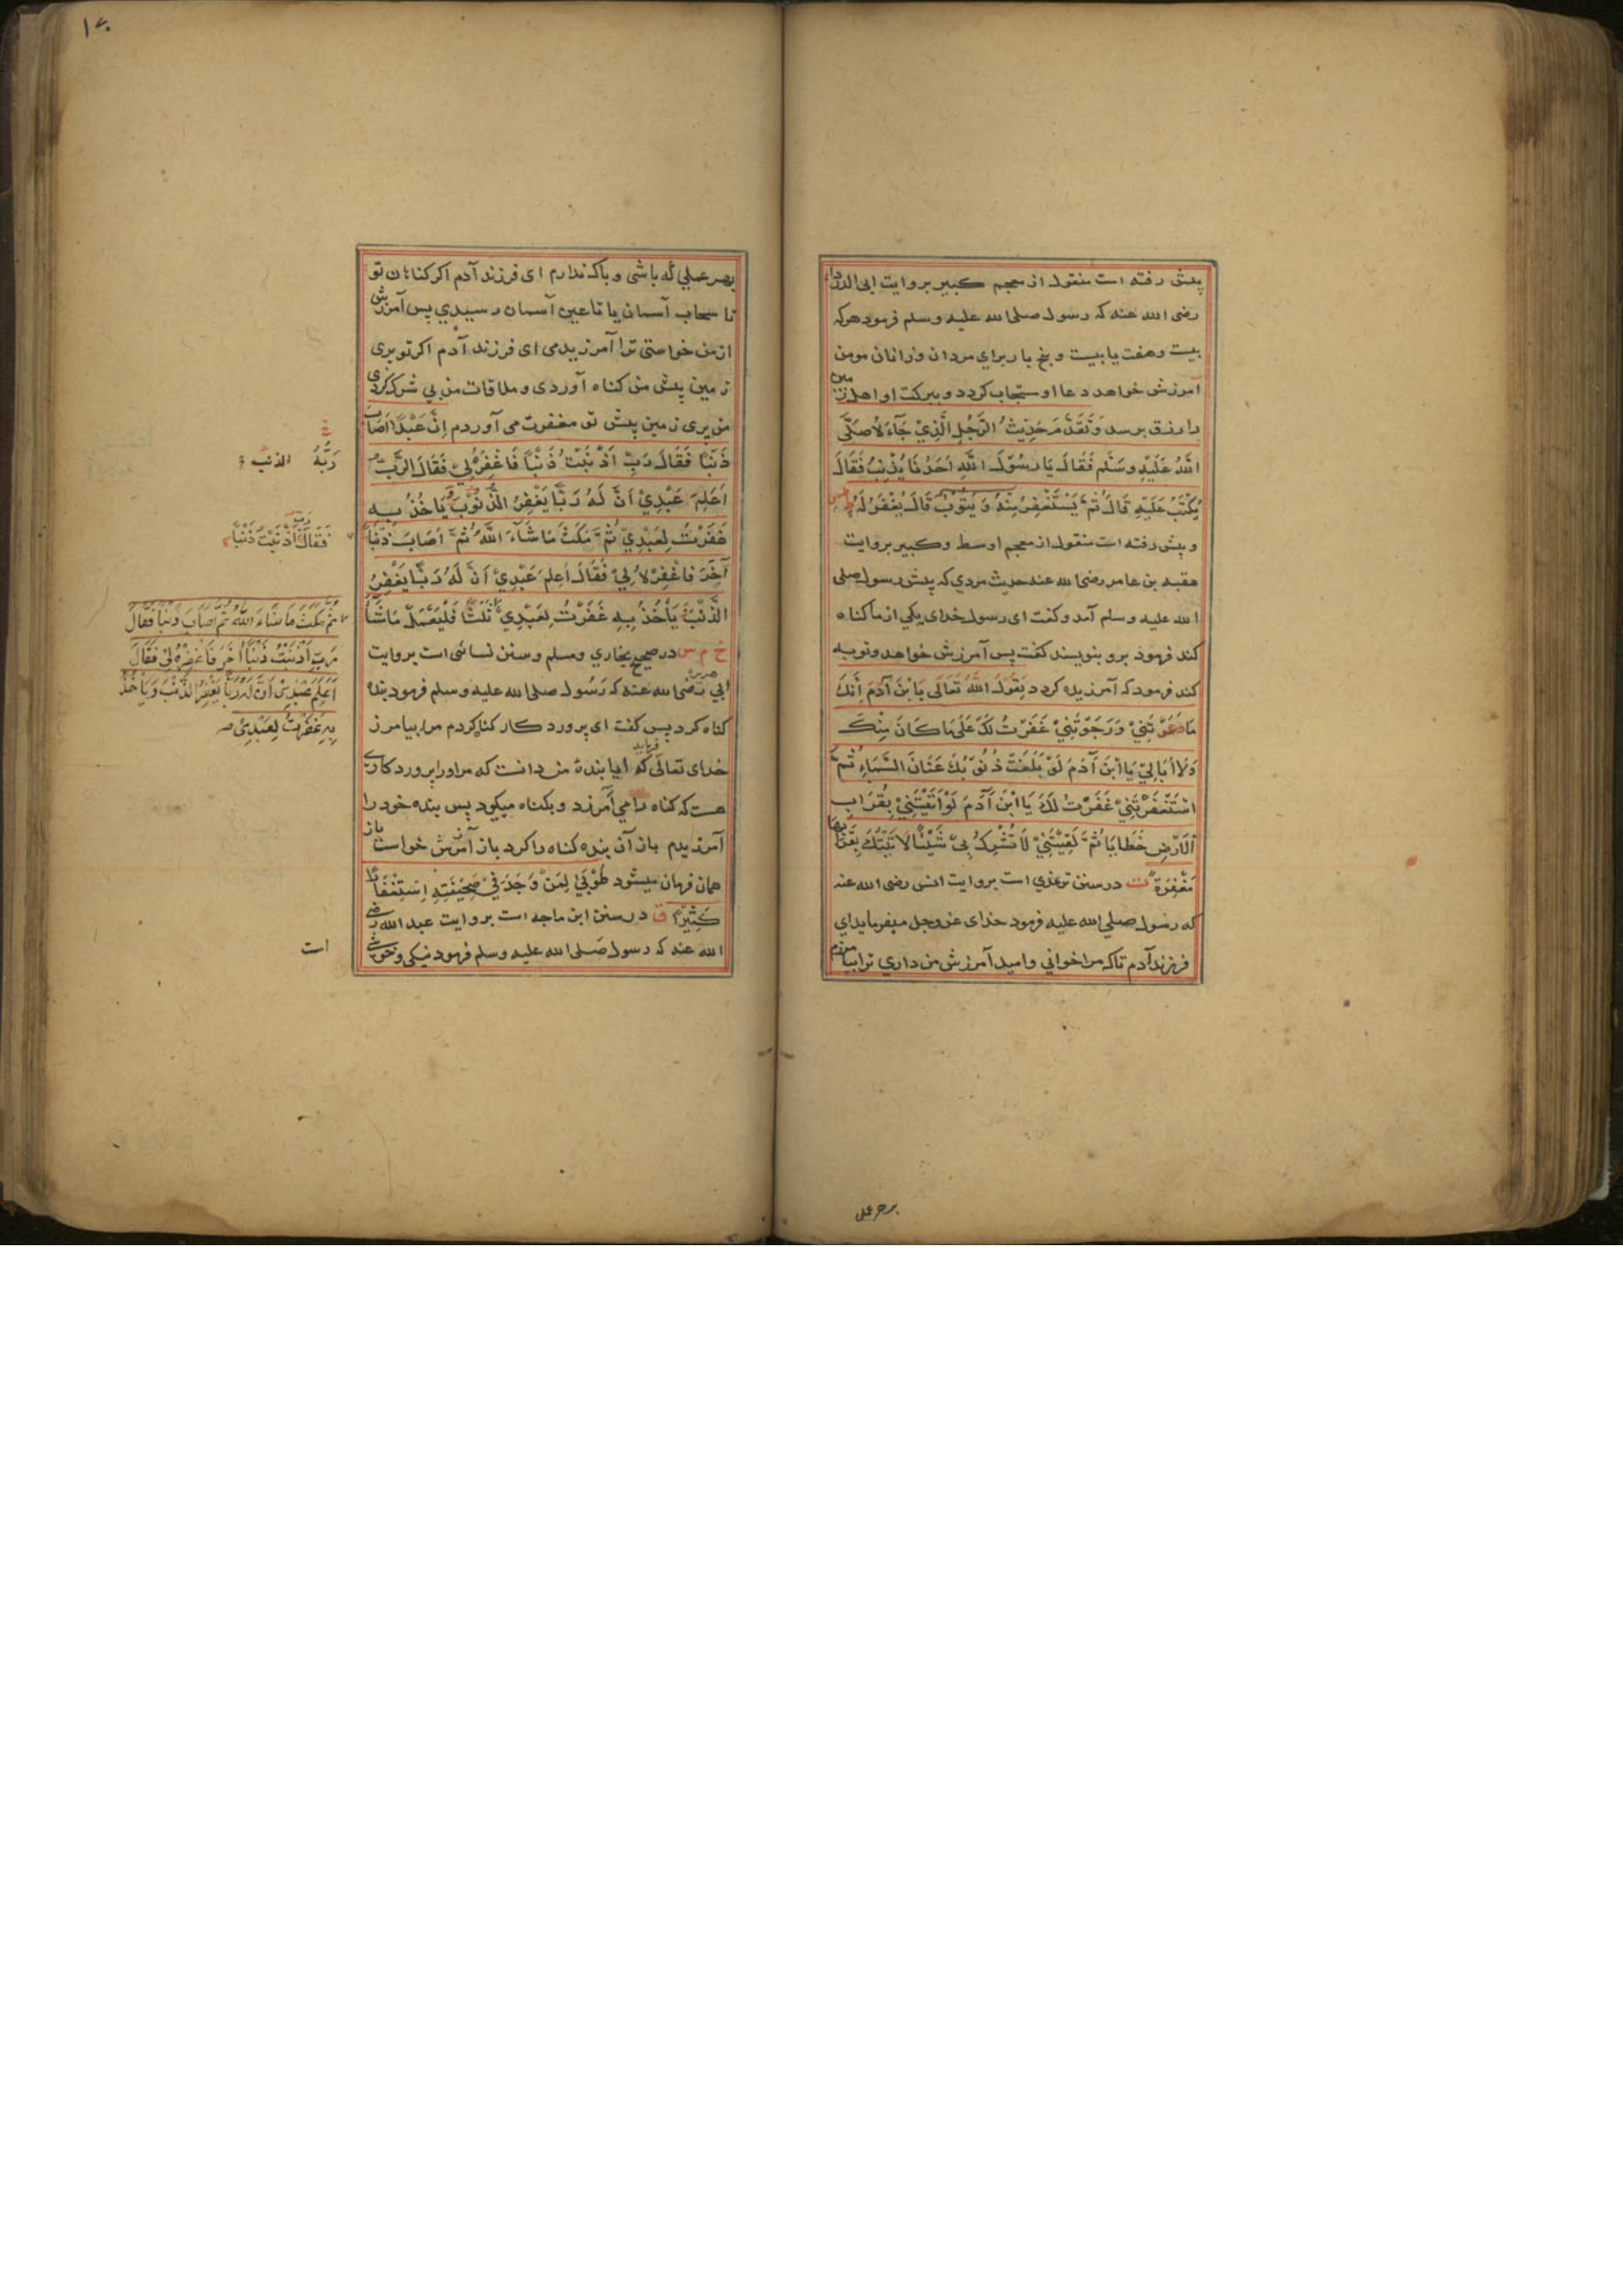 پیش رفته است منقول از معجم کبیر بروایت ابی الدردا
رضی الله عنه که رسول صلی الله علیه وسلم فرمود هرکه
بیست وهفت یا بیست و پنج بار برای مردان و زانان مومن
آمرزش خواهد دعا او مستجاب کردد و ببرکت او اهل زمین
را رزق برسد وَتَقَدَّمَ حَدِيثُ الرَّجُلِ الَّذِيْ جَآءَهُ صَلَّى
اللّٰهُ عَلَيْهِ وسَلَّم فَقَالَ يَا رَسُوْلَ اللّٰهِ اَحَدُنَا يُذْنِبُ فَقَالَ
يُكْتَبُ عَلَيْهِ قَالَ ثُمَّ يَسْتَغْفِرُ مِنْهُ وَيَتُوْبُ قَالَ يُغْفَرُ لَهُ طس
و پیش رفته است منقول از معجم اوسط وکبیر بروایت
عقبه بن عامر رضی الله عنه حدیث مردي که پیش رسول صلی
الله علیه وسلم آمد و کفت ای رسول خدای یکی از ما کناه
کند فرمود برو بنویسند کفت پس آمرزش خواهد و توبه
کند فرمود که آمرزیده کردد يَقُوْلُ اللّٰهُ تَعَالَى يَا ابْنَ آدَمَ اِنَّكَ
مَادَعَوْتَنِيْ وَرَجَوْتَنِيْ غَفَرْتُ لَكَ عَلَى مَا كَانَ مِنْكَ
وَلَا اُبَالِيْ يَا ابْنَ آدَمَ لَوْ بَلَغَتْ ذُنُوْبُكَ عَنَانَ السَّمَاءِ ثُمَّ
اسْتَغْفَرْتَنِيْ غَفَرْتُ لَكَ يَا ابْنَ آدَمَ لَوْ اَتَيْتَنِيْ بِقُرَابِ
الْاَرْضِ خَطَايَا ثُمَّ لَقِيْتَنِيْ لَا تُشْرِكُ بِيْ شَيْئًا لَاَتَيْتُكَ بِقُرَابِهَا
مَغْفِرَةً ت در سنن ترمذي است بروایت انس رضی الله عنه
که رسول صلی الله علیه فرمود خدای عز وجل میفرماید ای
فرزند آدم تاکه مرا خوانی وامید آمرزش من داري ترا بیامرزم
بهر عملی
بهر عملی که باشی و باک ندارم ای فرزند آدم اکر کناهان تو
تا سحاب آسمان یا تا عین آسمان رسیدي پس آمرزش
از من خواستی ترا آمرزیدمی ای فرزند آدم اکر تو پری
زمین پیش من کناه آوردی و ملاقات من بی شرک کردی
من پری زمین پیش تو مغفرت می آوردم اِنَّ عَبْدًا اَصَابَ
ذَنْبًا فَقَالَ رَبِّ اَذْنَبْتُ ذَنْبًا فَاغْفِرْهُ لِيْ فَقَالَ الرَّبُّ
اَعَلِمَ عَبْدِيْ اَنَّ لَهُ رَبًّا يَغْفِرُ الذُّنُوْبَ وَيَاْخُذُ بِهِ
غَفَرْتُ لِعَبْدِيْ ثُمَّ مَكَثَ مَا شَآءَ اللّٰهُ ثُمَّ اَصَابَ ذَنْبًا
آخَرَ فَاغْفِرْهُ لِيْ فَقَالَ اَعَلِمَ عَبْدِيْ اَنَّ لَهُ رَبًّا يَغْفِرُ
الذَّنْبَ يَأْخُذُ بِهِ غَفَرْتُ لِعَبْدِيْ ثَلٰثًا فَلْيَعْمَلْ مَا شَآءَ
خ م س در صحیح بخاري ومسلم وسنن نسائی است بروایت
ابی هریره رضی الله عنه که رسول صلی الله علیه وسلم فرمود بنده
کناه کرد پس کفت ای پروردکار کناه کردم مرا بیامرز
خدای تعالی فرماید که ایا بندهٔ من دانست که مر اورا پروردکاری
هست که کناه را می آمرزد و بکناه میکود پس بنده خود را
آمرزیدم باز آن بنده کناه را کرد باز آمرزش خواست باز
همان فرمان میشود طُوْبٰی لِمَنْ وَجَدَ فِيْ صَحِيْفَتِهِ اِسْتِغْفَارًا
كَثِيْرًا ق در سنن ابن ماجه است بروایت عبد الله رضی
الله عنه که رسول صلی الله علیه وسلم فرمود نیکی وخوشی
رَبَّهُ الذنب
فَقَالَ رَبِّ اَذْنَبْتُ ذَنْبًا
ثُمَّ مَكَثَ مَا شَاءَ اللّٰهُ ثُمَّ اَصَابَ ذَنْبًا فَقَالَ
رَبِّ اَذْنَبْتُ ذَنْبًا اٰخَرَ فَاغْفِرْهُ لِيْ فَقَالَ
اَعَلِمَ عَبْدِيْ اَنَّ لَهُ رَبًّا يَغْفِرُ الذَّنْبَ وَيَاْخُذُ
بِهِ غَفَرْتُ لِعَبْدِيْ
است